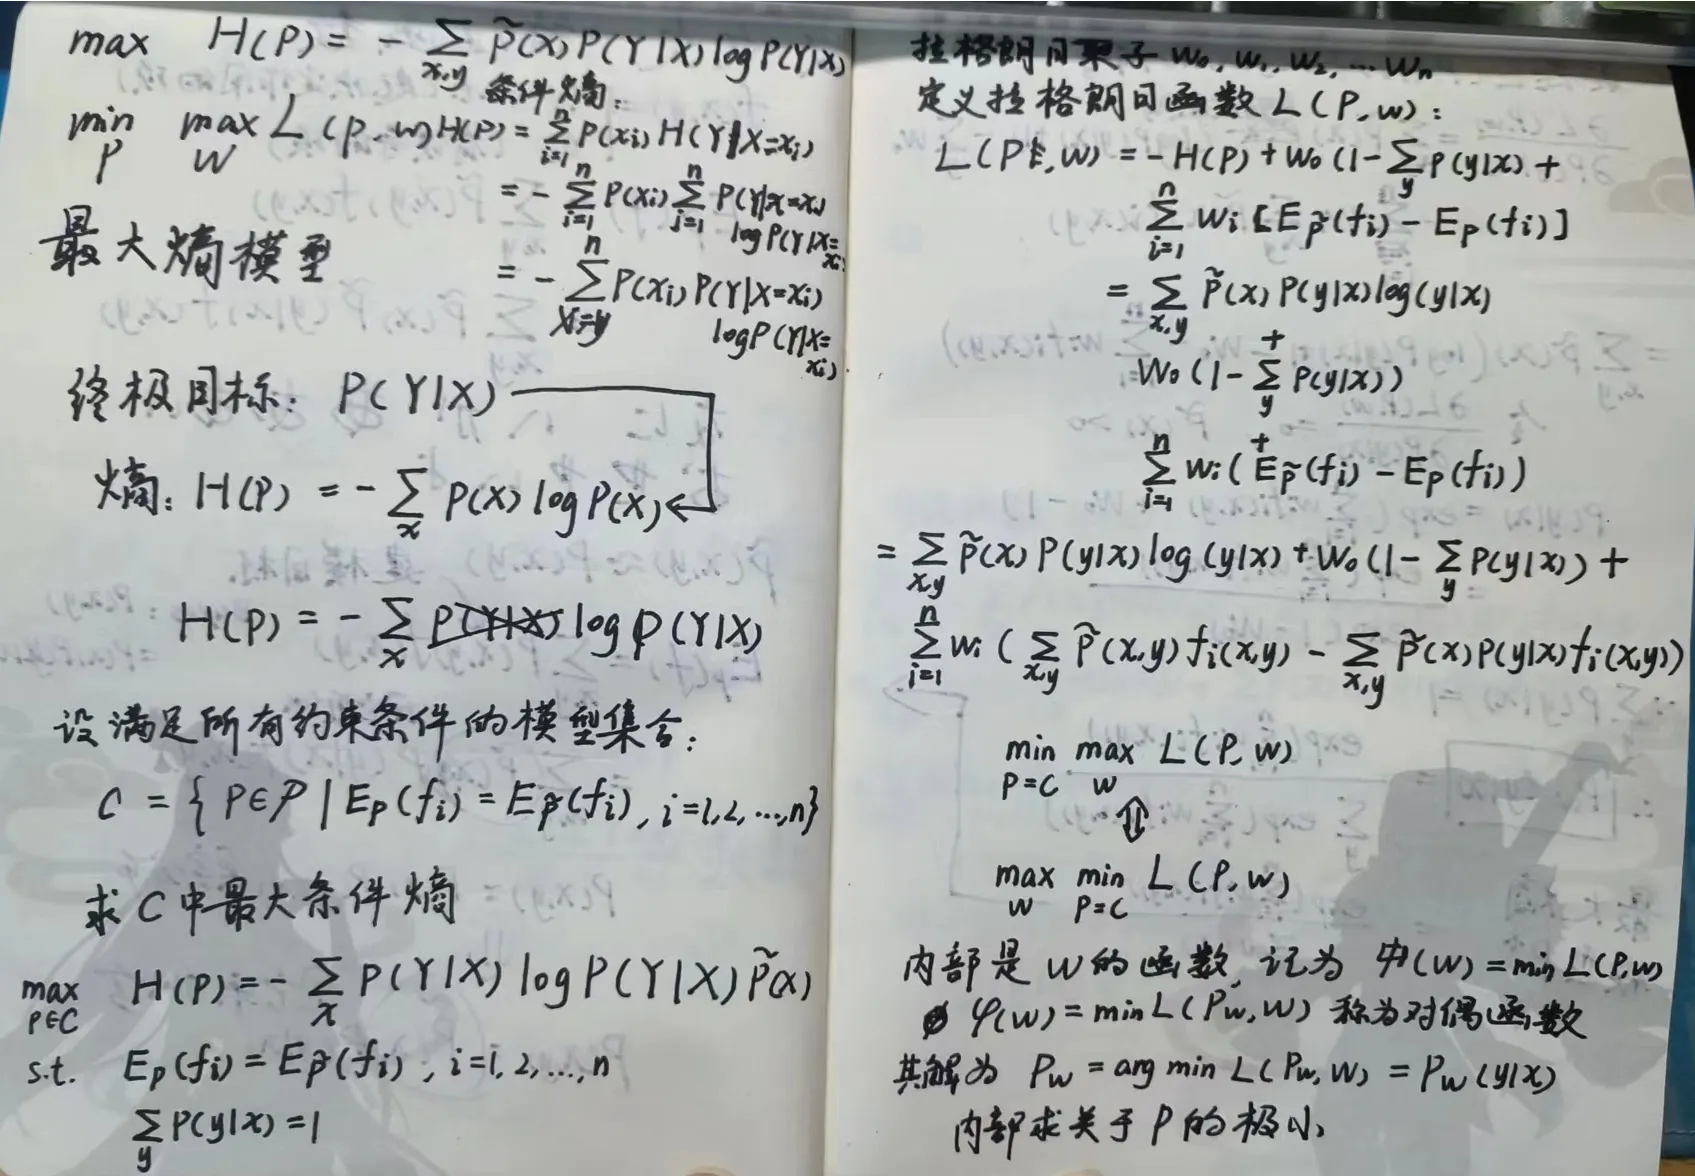 max H(P) = - ∑_{x,y} P̃(x) P(Y|X) log P(Y|X)
条件熵:
min_P max_W L (P, w) H(P) = ∑_{i=1}^{n} P(xi) H(Y|X=xi)
= - ∑_{i=1}^{n} P(xi) ∑_{j=1}^{n} P(Y|X=xi)
log P(Y|X=xi)
最大熵模型
= - ∑^{n} P(xi) P(Y|X=xi)
log P(Y|X=xi)
终极目标: P(Y|X)
熵: H(P) = - ∑_x P(X) log P(X)
H(P) = - ∑_x P(Y|X) log P(Y|X)
设满足所有约束条件的模型集合:
C = { P∈𝒫 | E_P(fi) = E_P̃(fi), i=1,2,...,n}
求C中最大条件熵
max_{P∈C} H(P) = - ∑_x P(Y|X) log P(Y|X) P̃(x)
s.t. E_P(fi) = E_P̃(fi), i=1,2,...,n
∑_y P(y|x) = 1
拉格朗日乘子 w₀, w₁, w₂, ... wn
定义拉格朗日函数 L(P,w):
L(P, w) = - H(P) + W₀ (1 - ∑_y P(y|x) +
∑_{i=1}^{n} wi [E_P̃(fi) - E_P(fi)]
= ∑_{x,y} P̃(x) P(y|x) log(y|x)
+
W₀ (1 - ∑_y P(y|x))
+
∑_{i=1}^{n} wi (E_P̃(fi) - E_P(fi))
= ∑_{x,y} P̃(x) P(y|x) log (y|x) + W₀ (1 - ∑_y P(y|x)) +
∑_{i=1}^{n} wi (∑_{x,y} P̃(x,y) fi(x,y) - ∑_{x,y} P̃(x) P(y|x) fi(x,y))
min_{P=C} max_w L (P, w)
⇕
max_w min_{P=C} L (P, w)
内部是 w 的函数, 记为 中(w) = min L(P,w)
φ(w) = min L(Pw, w) 称为对偶函数
其解为 Pw = arg min L(Pw, w) = Pw (y|x)
内部求关于 P 的极小